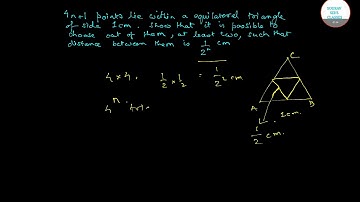 4n+1 points lie within a equilateral triangle
of side 1cm. Show that it is possible to
choose out of them, at least two, such that
distance between them is 1/2^n cm
4 × 4. 1/2 × 1/2 = 1/2^2 cm
4^n. tri.
C
A
B
1cm.
1/2 cm.